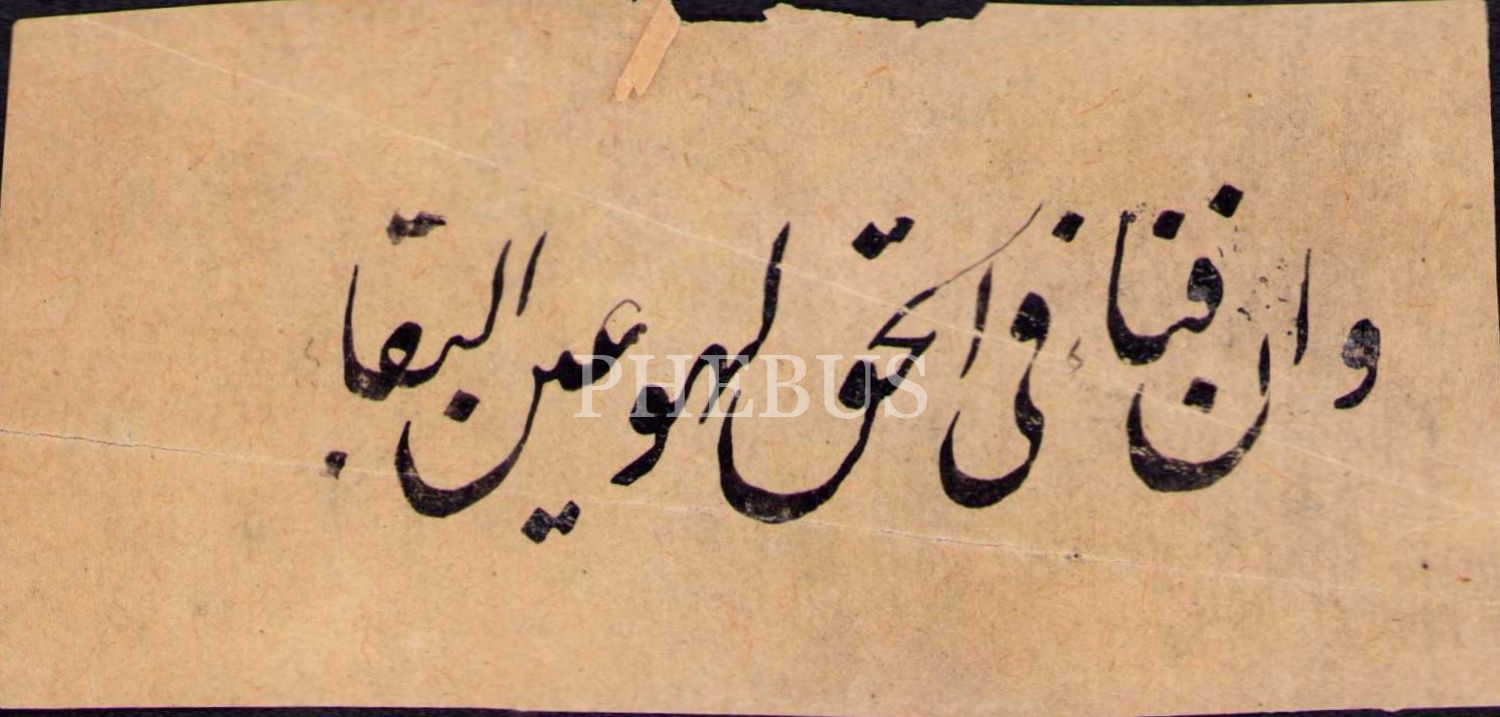 وان فناء فی الحق لهو عین البقاء
PHEBUS